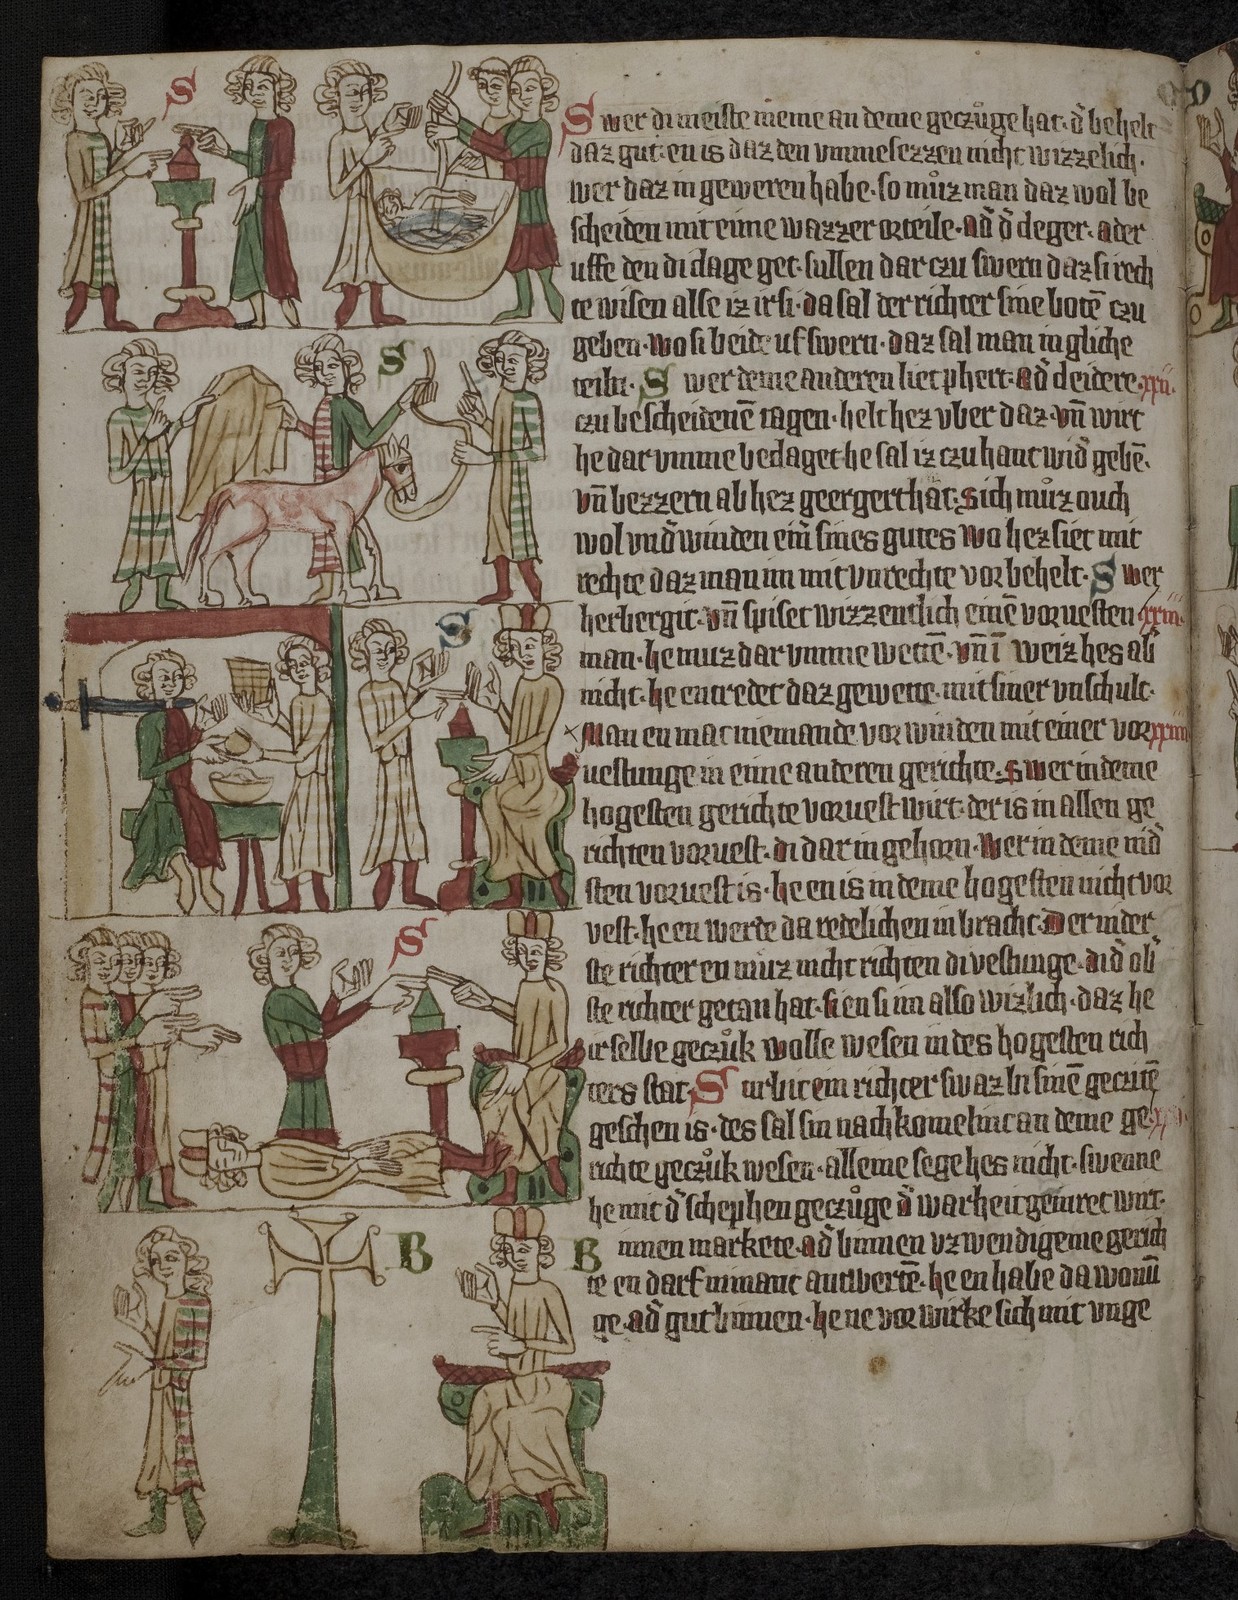 S
S
S
S
B
Swer di meiste menie an deme geczuͦge hat· d̕ behelt
daz gut· en is daz den vmmesezzen nicht wizzelich·
wer daz in geweren habe· so muͦz man daz wol be
scheiden mit eime wazzer orteile· ad̕ d̕ cleger· ader
uffe den di clage get· sullen dar czu swern daz si rech
te wisen alse iz ir si· da sal der richter sine botē czu
geben· wo si beide uf swern· daz sal man in gliche
teiln· Swer deme anderen liet phert· ad̕ cleidere xxii·
czu bescheidenē tagen· helt hez vber daz· vn̄ wirt
he dar vmme beclaget· he sal iz czu hant wid̕ gebē·
vn̄ bezzern ab hez geergert hat· sich muͦz ouch
wol vnd̕winden ein̄ sines gutes wo hez siet mit
rechte daz man im mit vnrechte vor behelt· Swer
herbergit· vn̄ spiset wizzentlich einē voruesten xxiii·
man· he muz dar vmme wettē· vn̄ i weiz hes ab̕
nicht· he entredet daz gewette· mit siner vnschult·
Man en mac niemande vor winden mit einer vor xxiiii
uestunge in eime anderen gerichte· swer in deme
hogesten gerichte voruest wirt· der is in allen ge
richten voruest· di dar in gehorn· wer in deme nid̕
sten voruest is· he en is in deme hogesten nicht vor
vest· he en werde da redelichen in bracht· Der nider
ste richter en muͦz nicht richten di vestunge· di d̕ ob̕
ste richter getan hat· si en si im also wizlich· daz he
ir selbe geczuͦk wolle wesen in des hogesten rich
ters stat· Stirbit ein richter swaz bi sinē geczitē
geschen is· des sal sin nachkomelinc an deme ge
richte geczuͦk wesen· alleine segehes nicht· swenne
he mit d̕ schephen geczuͦge d̕ warheit geinret wirt·
Binnen markete· ad̕ binnen vzwendigeme gerich
te en darf nimant antwertē· he en habe da wonū
ge· ad̕ gut binnen· he ne vor wirke sich mit vnge